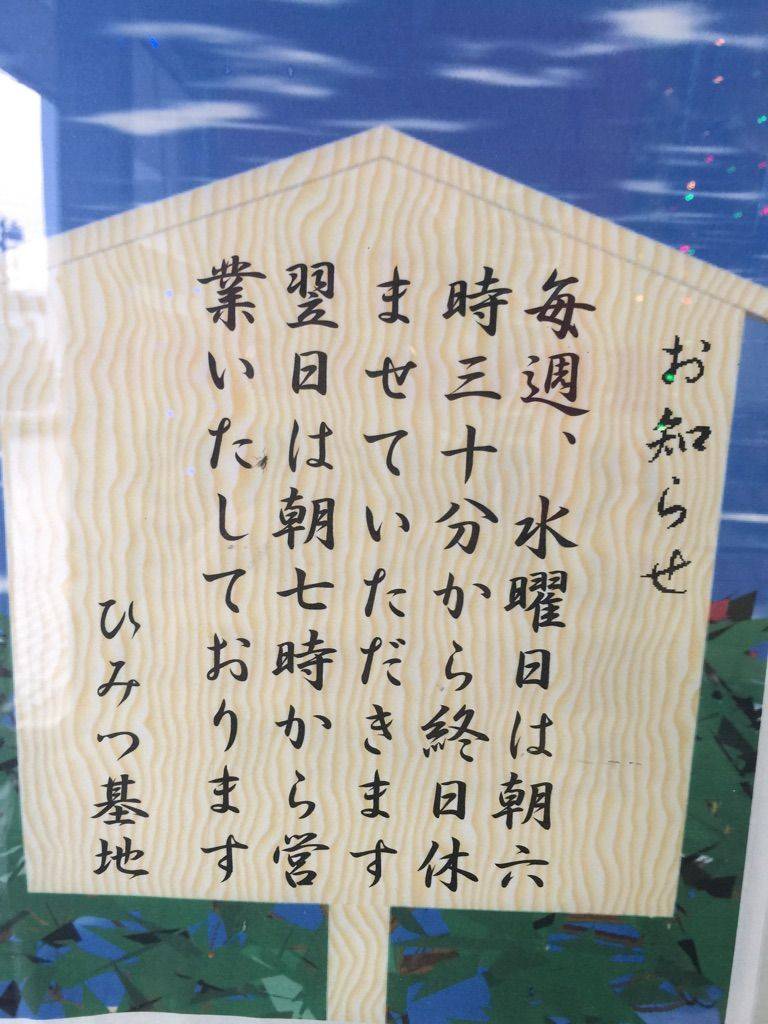 お知らせ
毎週、水曜日は朝六
時三十分から終日休
ませていただきます
翌日は朝七時から営
業いたしております
ひみつ基地